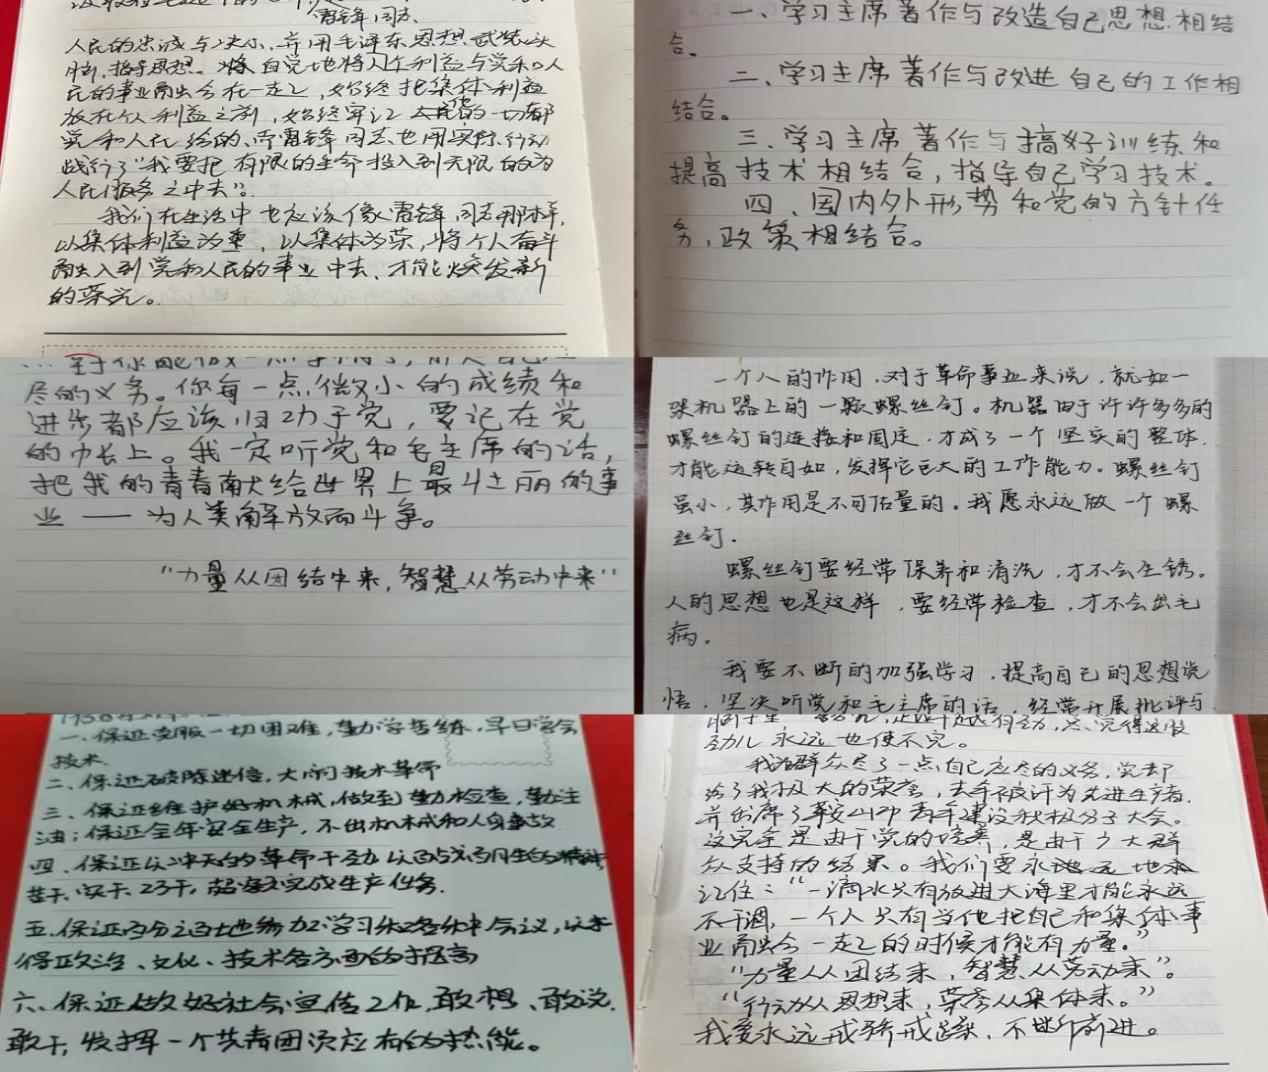 雷锋同志
人民的忠诚与决心,并用毛泽东思想武装头
脑,指导思想。将自觉地将个人利益与党和人
民的事业融合在一起,始终把集体利益
放在个人利益之前,始终牢记他的一切都
党和人民给的,而雷锋同志也用实际行动
践行了“我要把有限的生命投入到无限的为
人民服务之中去”。
我们在生活中也应该像雷锋同志那样,
以集体利益为重,以集体为荣,将个人奋斗
融入到党和人民的事业中去,才能焕发新
的荣光。
一、学习主席著作与改造自己思想相结
合。
二、学习主席著作与改进自己的工作相
结合。
三、学习主席著作与搞好训练和
提高技术相结合,指导自己学习技术。
四、国内外形势和党的方针任
务,政策相结合。
尽的义务。你每一点微小的成绩和
进步都应该归功于党,要记在党
的帐上。我一定听党和毛主席的话,
把我的青春献给世界上最壮丽的事
业——为人类解放而斗争。
“力量从团结中来,智慧从劳动中来”
一个人的作用,对于革命事业来说,就如一
架机器上的一颗螺丝钉。机器由于许许多多的
螺丝钉的连接和固定,才成了一个坚实的整体,
才能运转自如,发挥它巨大的工作能力。螺丝钉
虽小,其作用是不可估量的。我愿永远做一个螺
丝钉.
螺丝钉要经常保养和清洗,才不会生锈。
人的思想也是这样,要经常检查,才不会出毛
病。
我要不断的加强学习,提高自己的思想觉
悟,坚决听党和毛主席的话,经常开展批评与
一、保证克服一切困难,勤学苦练,早日学会
技术.
二、保证破除迷信,大闹技术革命
三、保证维护好机械,做到勤检查,勤注
油;保证全年安全生产,不出机械和人身事故.
四、保证以冲天的革命干劲
苦干、实干、巧干,超额完成生产任务.
五、保证百分之百地参加学习和各种会议,以求
得政治、文化、技术各方面的提高
六、保证做好社会宣传工作,敢想、敢说、
敢干,发挥一个共青团员应有的热能。
劲儿永远也使不完。
我为群众尽了一点自己应尽的义务,党却
给了我极大的荣誉,去年被评为先进生产者,
并出席了鞍山市青年建设积极分子大会。
这完全是由于党的培养,是由于广大群
众支持的结果。我们要永远地
记住:“一滴水只有放进大海里才能永远
不干涸,一个人只有当他把自己和集体事
业融合一起的时候才能有力量。”
“力量从团结来,智慧从劳动来”。
“行动从思想来,荣誉从集体来。”
我要永远戒骄戒躁、不断前进。